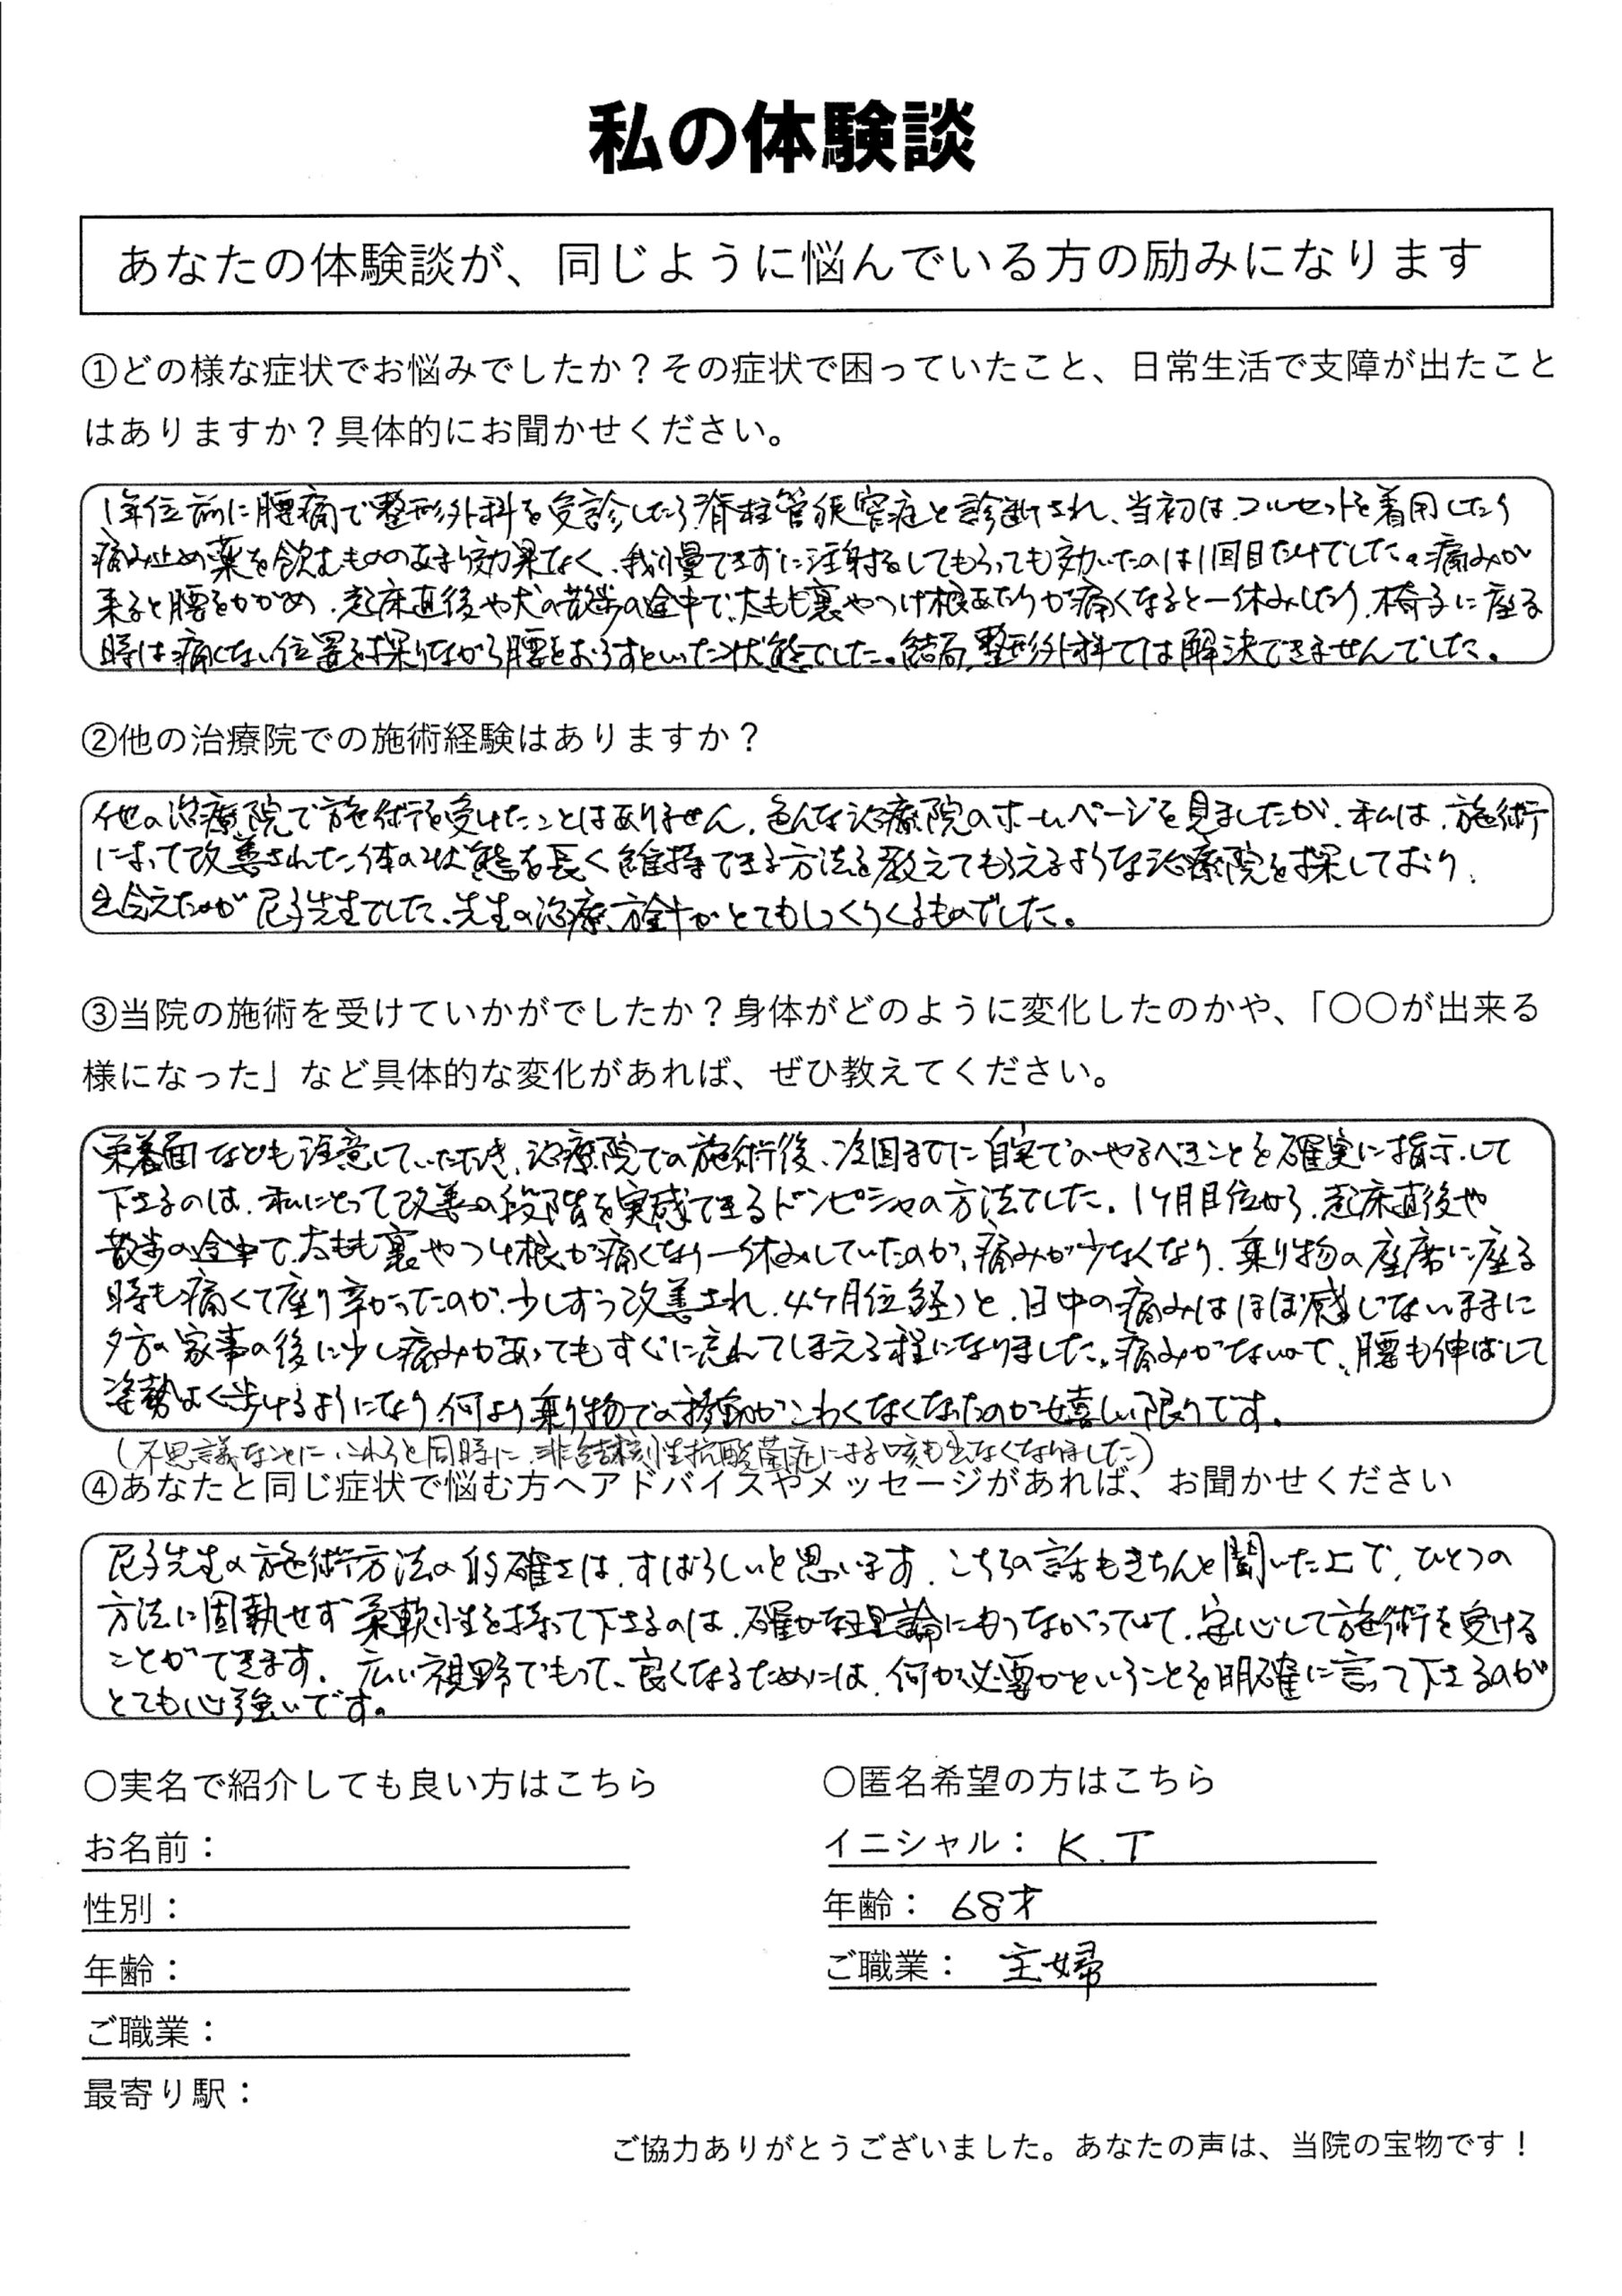 私の体験談
あなたの体験談が、同じように悩んでいる方の励みになります
①どの様な症状でお悩みでしたか？その症状で困っていたこと、日常生活で支障が出たこと
はありますか？具体的にお聞かせください。
1年位前に腰痛で整形外科を受診したら脊柱管狭窄症と診断され、当初は、コルセットを着用したり
痛み止め薬を飲むもののあまり効果なく、我慢できずに注射をしてもらっても効いたのは1回目だけでした。痛みが
来ると腰をかがめ、起床直後や犬の散歩の途中で、太もも裏やつけ根あたりが痛くなると一休みしたり、椅子に座る
時は痛くない位置を探りながら腰をおろすといった状態でした。結局、整形外科では解決できませんでした。
②他の治療院での施術経験はありますか？
他の治療院で施術を受けたことはありません。色んな治療院のホームページを見ましたが、私は、施術
によって改善された体の状態を長く維持できる方法を教えてもらえるような治療院を探しており、
出会えたのが尼子先生でした、先生の治療方針がとてもしっくりくるものでした。
③当院の施術を受けていかがでしたか？身体がどのように変化したのかや、「〇〇が出来る
様になった」など具体的な変化があれば、ぜひ教えてください。
栄養面なども注意していただき、治療院での施術後、次回までに自宅でのやるべきことを確実に指示して
下さるのは、私にとって改善の段階を実感できるドンピシャの方法でした。1ヶ月目位から、起床直後や
散歩の途中で、太もも裏やつけ根が痛くなり一休みしていたのが、痛みが少なくなり、乗り物の座席に座る
時も痛くて座り辛かったのが、少しずつ改善され、4ヶ月位経つと、日中の痛みはほぼ感じないままに
夕方の家事の後に少し痛みがあってもすぐに忘れてしまえる程になりました。痛みがないので、腰も伸ばして
姿勢よく歩けるようになり、何より乗り物での移動がこわくなくなったのが嬉しい限りです。
（不思議なことに、これらと同時に、非結核性抗酸菌症による咳も出なくなりました）
④あなたと同じ症状で悩む方へアドバイスやメッセージがあれば、お聞かせください
尼子先生の施術方法の的確さは、すばらしいと思います。こちらの話もきちんと聞いた上で、ひとつの
方法に固執せず柔軟性を持って下さるのは、確かな理論にもつながっていて、安心して施術を受ける
ことができます。広い視野でもって、良くなるためには、何が必要かということを明確に言って下さるのが
とても心強いです。
〇実名で紹介しても良い方はこちら
お名前：
性別：
年齢：
ご職業：
最寄り駅：
〇匿名希望の方はこちら
イニシャル： K.T
年齢： 68才
ご職業： 主婦
ご協力ありがとうございました。あなたの声は、当院の宝物です！